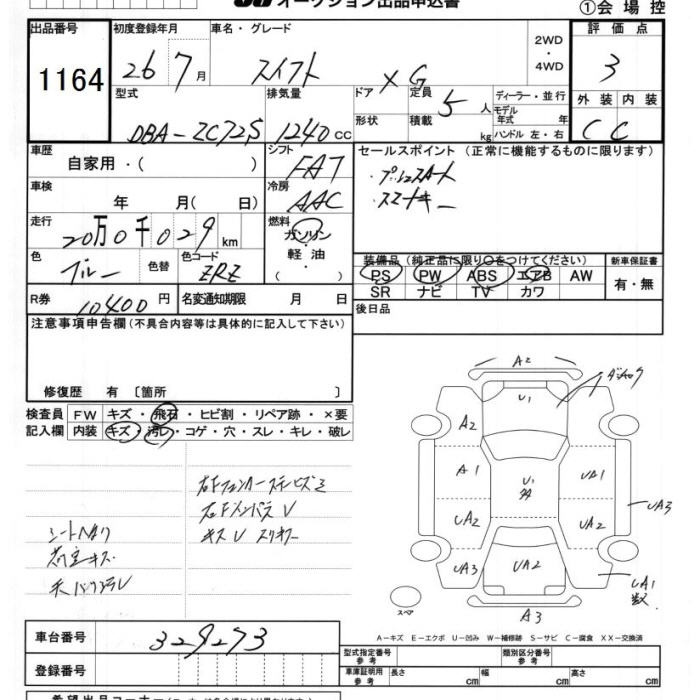 オークション出品申込書
①会場控
出品番号
1164
初度登録年月
26 7月
車名・グレード
スイフト XG
2WD
・
4WD
評価点
3
外装 内装
C C
型式
DBA-ZC72S
排気量
1240 cc
ドア
形状
定員
5 人
積載 kg
ディーラー・並行
モデル年式 年
ハンドル 左・右
車歴
自家用・( )
シフト
FAT
セールスポイント (正常に機能するものに限ります)
・プッシュスタート
・スマートキー
車検
年 月( 日)
冷房
AAC
走行
20万0千029km
燃料
ガソリン
・
軽油
・
( )
色
ブルー
色替
色コード
ZRZ
装備品 (純正品に限り○をつけてください)
PS PW ABS エアB AW
SR ナビ TV カワ
新車保証書
有・無
R券
10400円
名変通知期限 月 日
後日品
注意事項申告欄(不具合内容等は具体的に記入して下さい)
修復歴 有 〔箇所 〕
検査員記入欄
FW キズ・飛石・ヒビ割・リペア跡・×要
内装 キズ・汚レ・コゲ・穴・スレ・キレ・破レ
キズU スリキズ
荷室キズ
A2
U1
A2
A1
UA1
UA2
UA2
UA3
UA3
UA2
UA1
A3
スペア
A-キズ E-エクボ U-凹み W-補修跡 S-サビ C-腐食 XX-交換済
車台番号
329273
登録番号
型式指定番号 参考
類別区分番号 参考
車庫証明用 参考 長さ cm 幅 cm 高さ cm